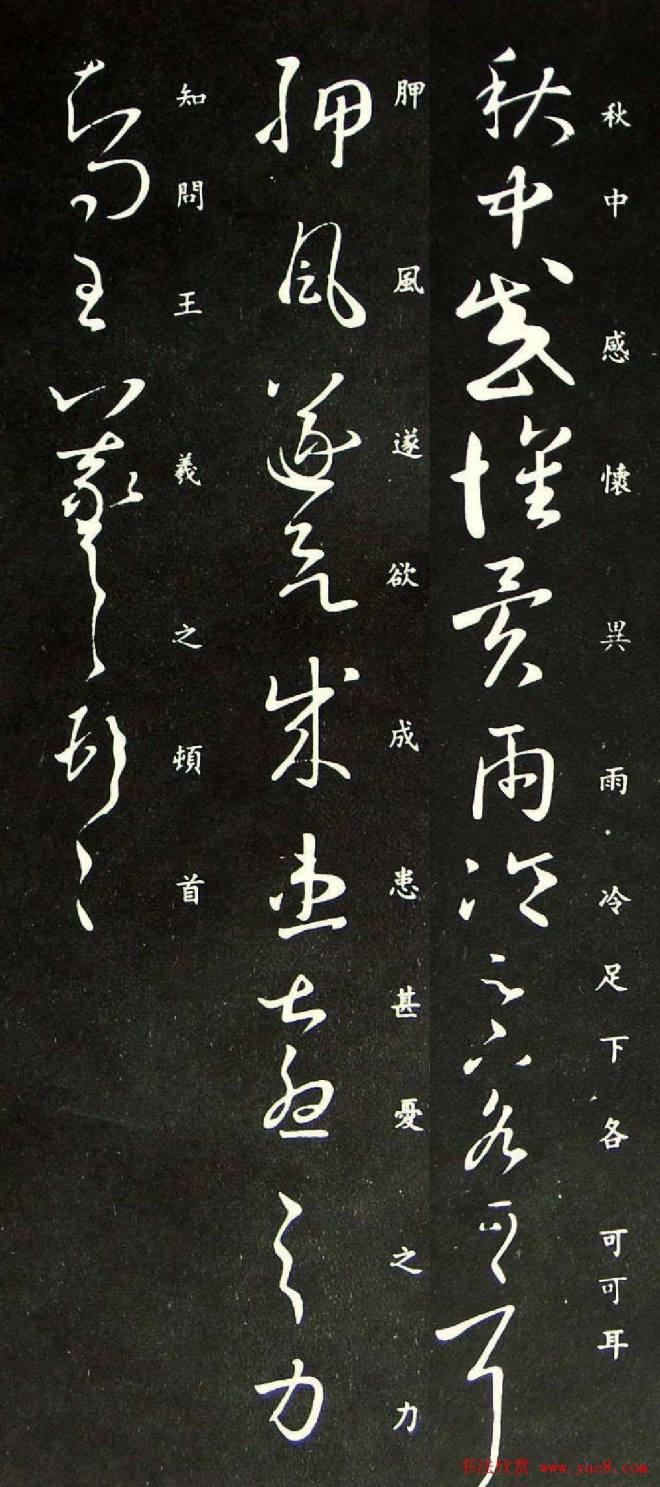 秋中感懷異雨冷足下各可可耳
胛風遂欲成患甚憂之力
知問王羲之頓首
书法欣赏 www.yhc8.com